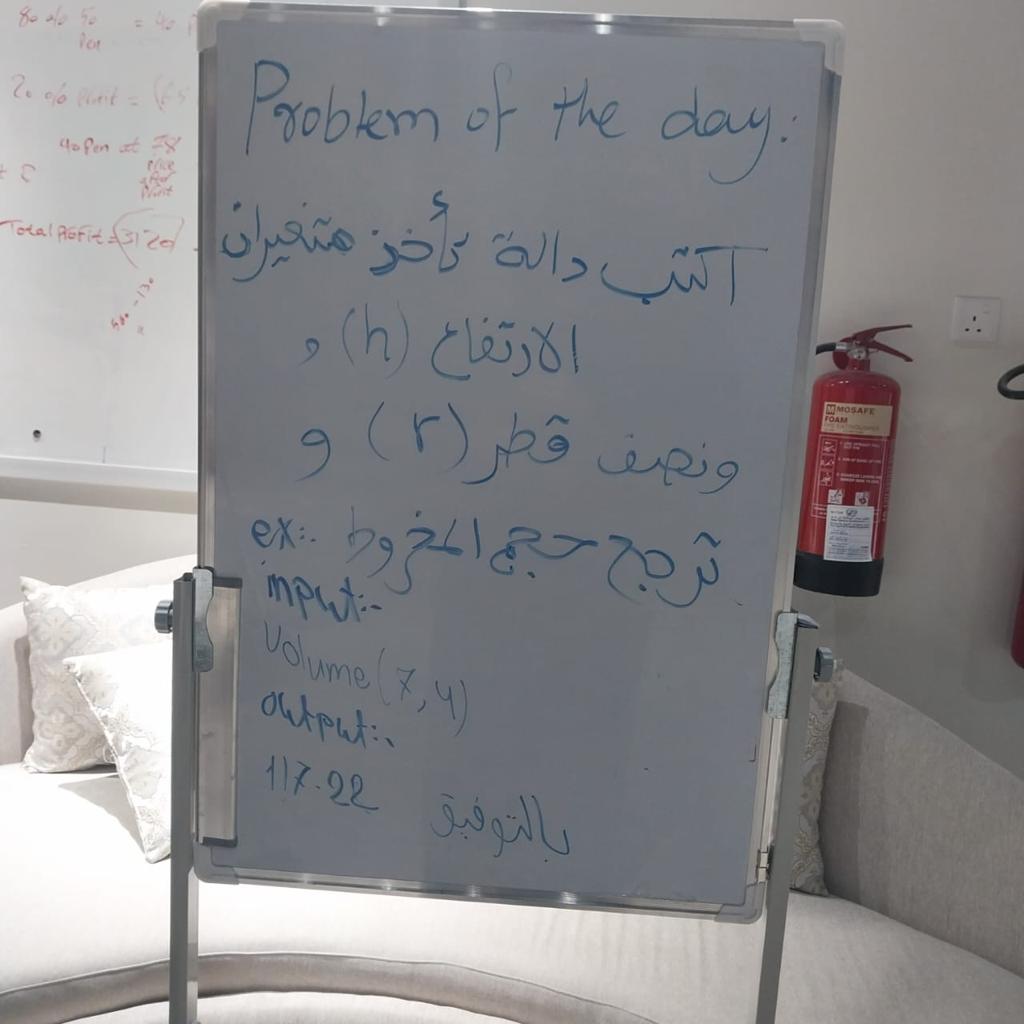 80 % 50 = 40 P
Pen
20 % Profit =
40 Pen at 78
Price
after
Profit
Total Profit = 3120
Problem of the day:
اكتب دالة تأخذ متغيران
الارتفاع (h) و
ونصف قطر (r) و
ترجع حجم المخروط ex:.
input:.
Volume(7,4)
output:.
117.22
بالتوفيق
MOSAFE
FOAM
FIRE EXTINGUISHER